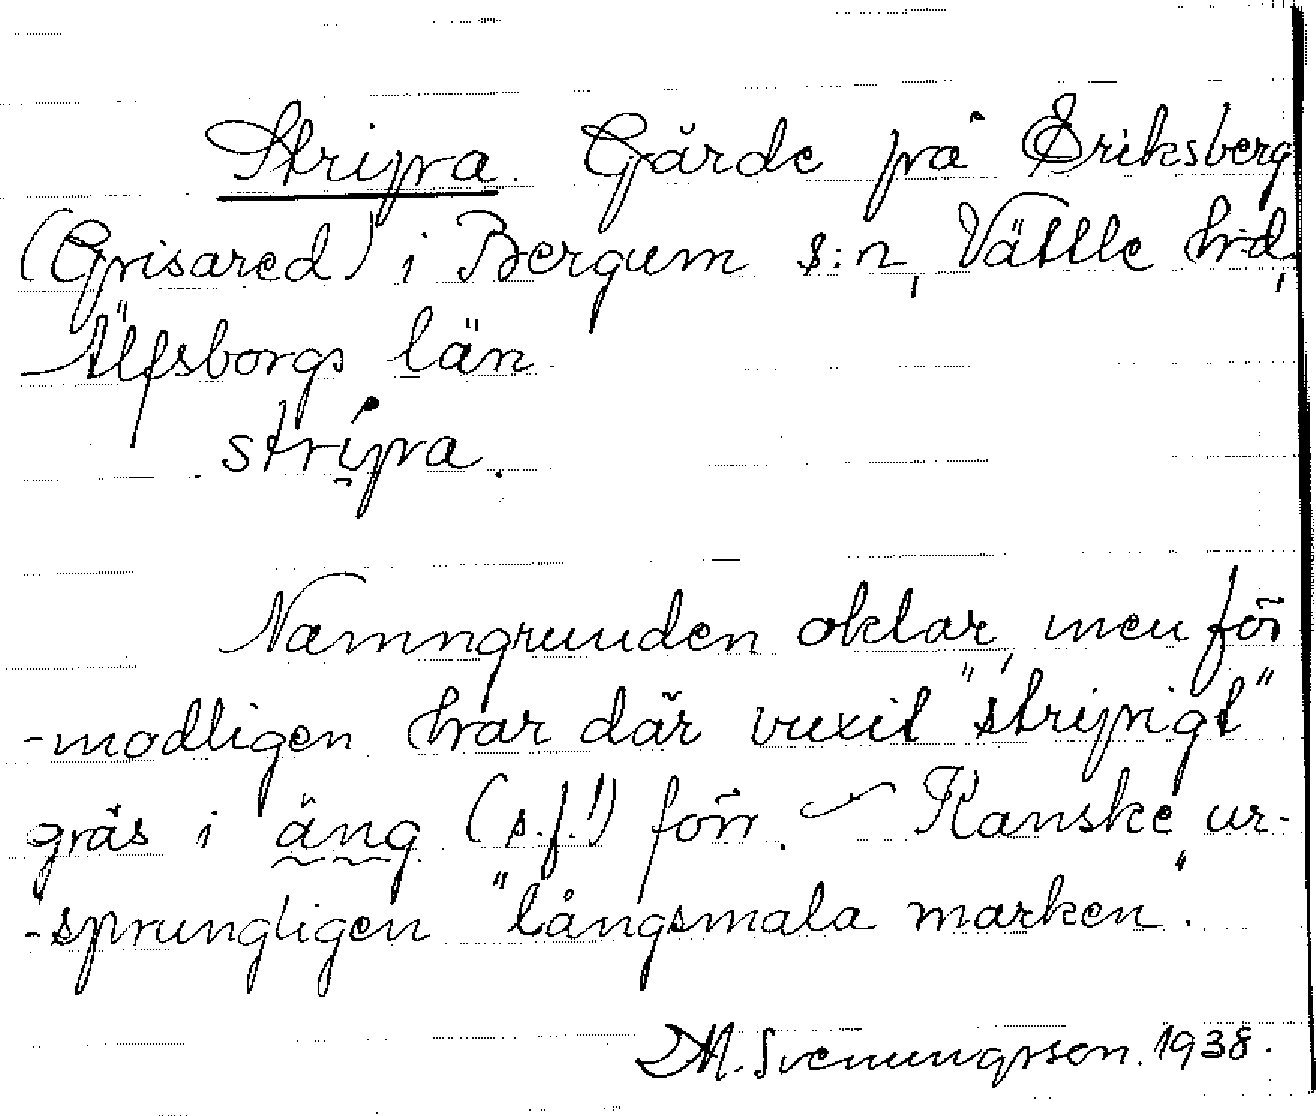 Stripa. Gärde på Eriksberg
(Grisared) i Bergum s:n, Vättle hd,
Älfsborgs län
stripa.
Namngrunden oklar, men för
-modligen har där vuxit "stripigt"
gräs i äng (s.f.!) förr. ~ Kanske ur-
-sprungligen "långsmala marken".
M. Svenungsson. 1938.